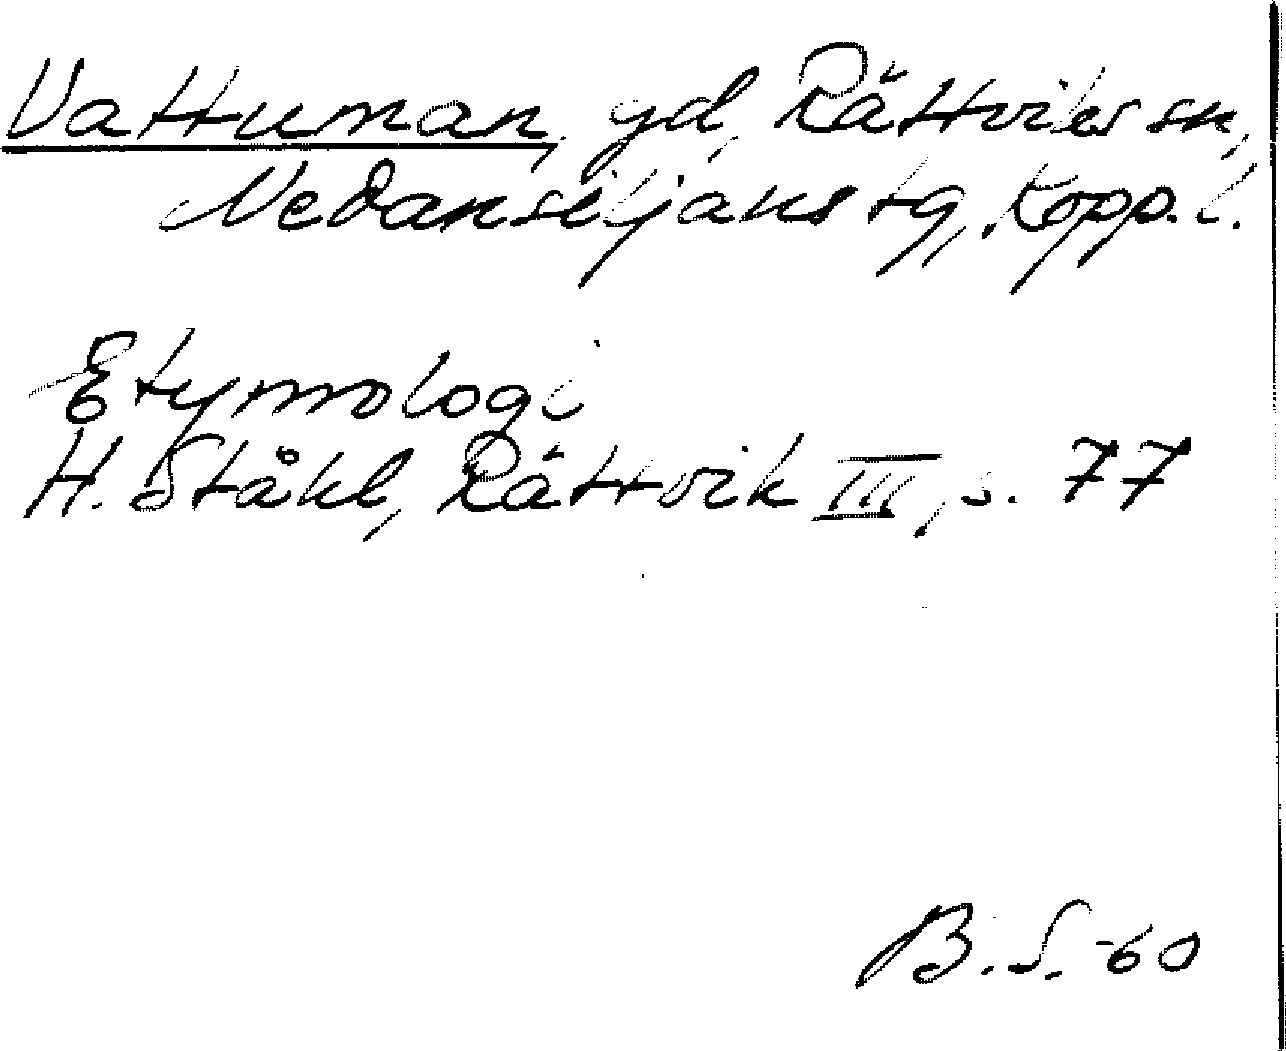 Vattuman, gd, Rättviks sn,
Nedansiljans tg, Kopp. l.
Etymologi
H. Ståhl, Rättvik III, s. 77
B. S. -60